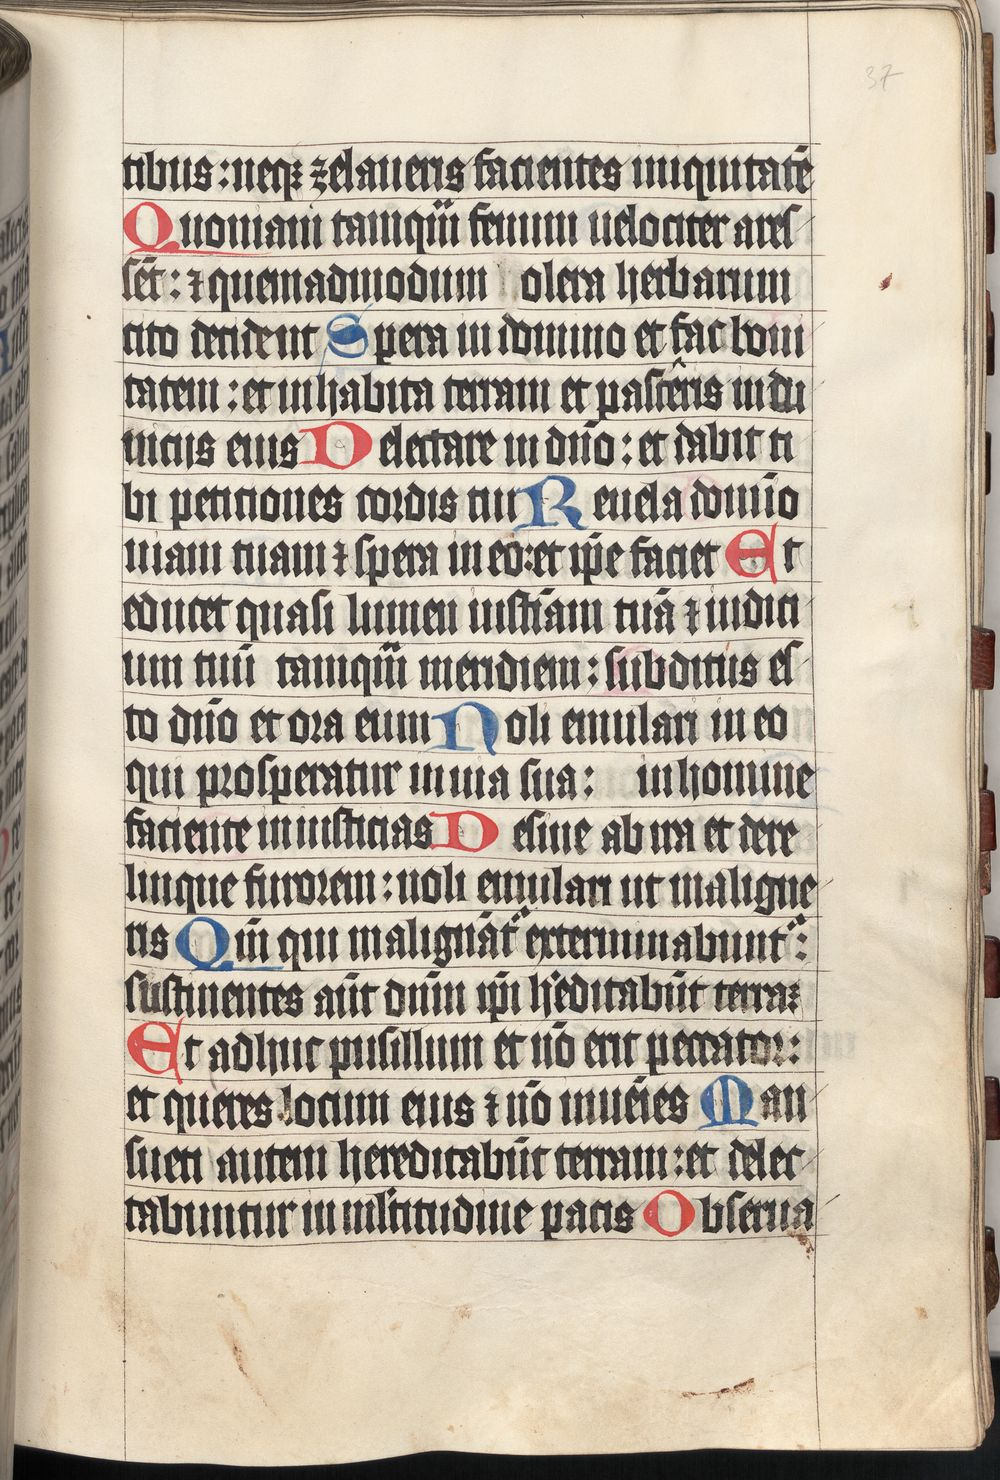 37
tibus: neqꝫ zelaueris facientes iniquitatē
Quoniam tamqm̄ fenum uelociter ares
sēt: ⁊ quemadmodum olera herbarum
cito decident Spera in domino et fac boni
tatem: et inhabita terram et pascēris in di
uicijs eius Delectare in dn̄o: et dabit ti
bi peticiones cordis tui Reuela domīo
uiam tuam ⁊ spera in eo: et ip̄e faciet Et
educet quasi lumen iusticiam tuā ⁊ iudici
um tuū tamqm̄ meridiem: subditus es
to dn̄o et ora eum Noli emulari in eo
qui prosperatur in uia sua: in homine
faciente iniusticias Desine ab ira et dere
linque furorem: noli emulari ut maligne
ris Qm̄ qui malignāt᷑ exterminabunt᷑:
sustinentes aūt dn̄m ip̄i h̄editabūt terraꝫ
Et adhuc pusillum et nō erit peccator:
et queres locum eius ⁊ nō inuēies Man
sueti autem hereditabūt terram: et delec
tabuntur in mltitudine pacis Obserua